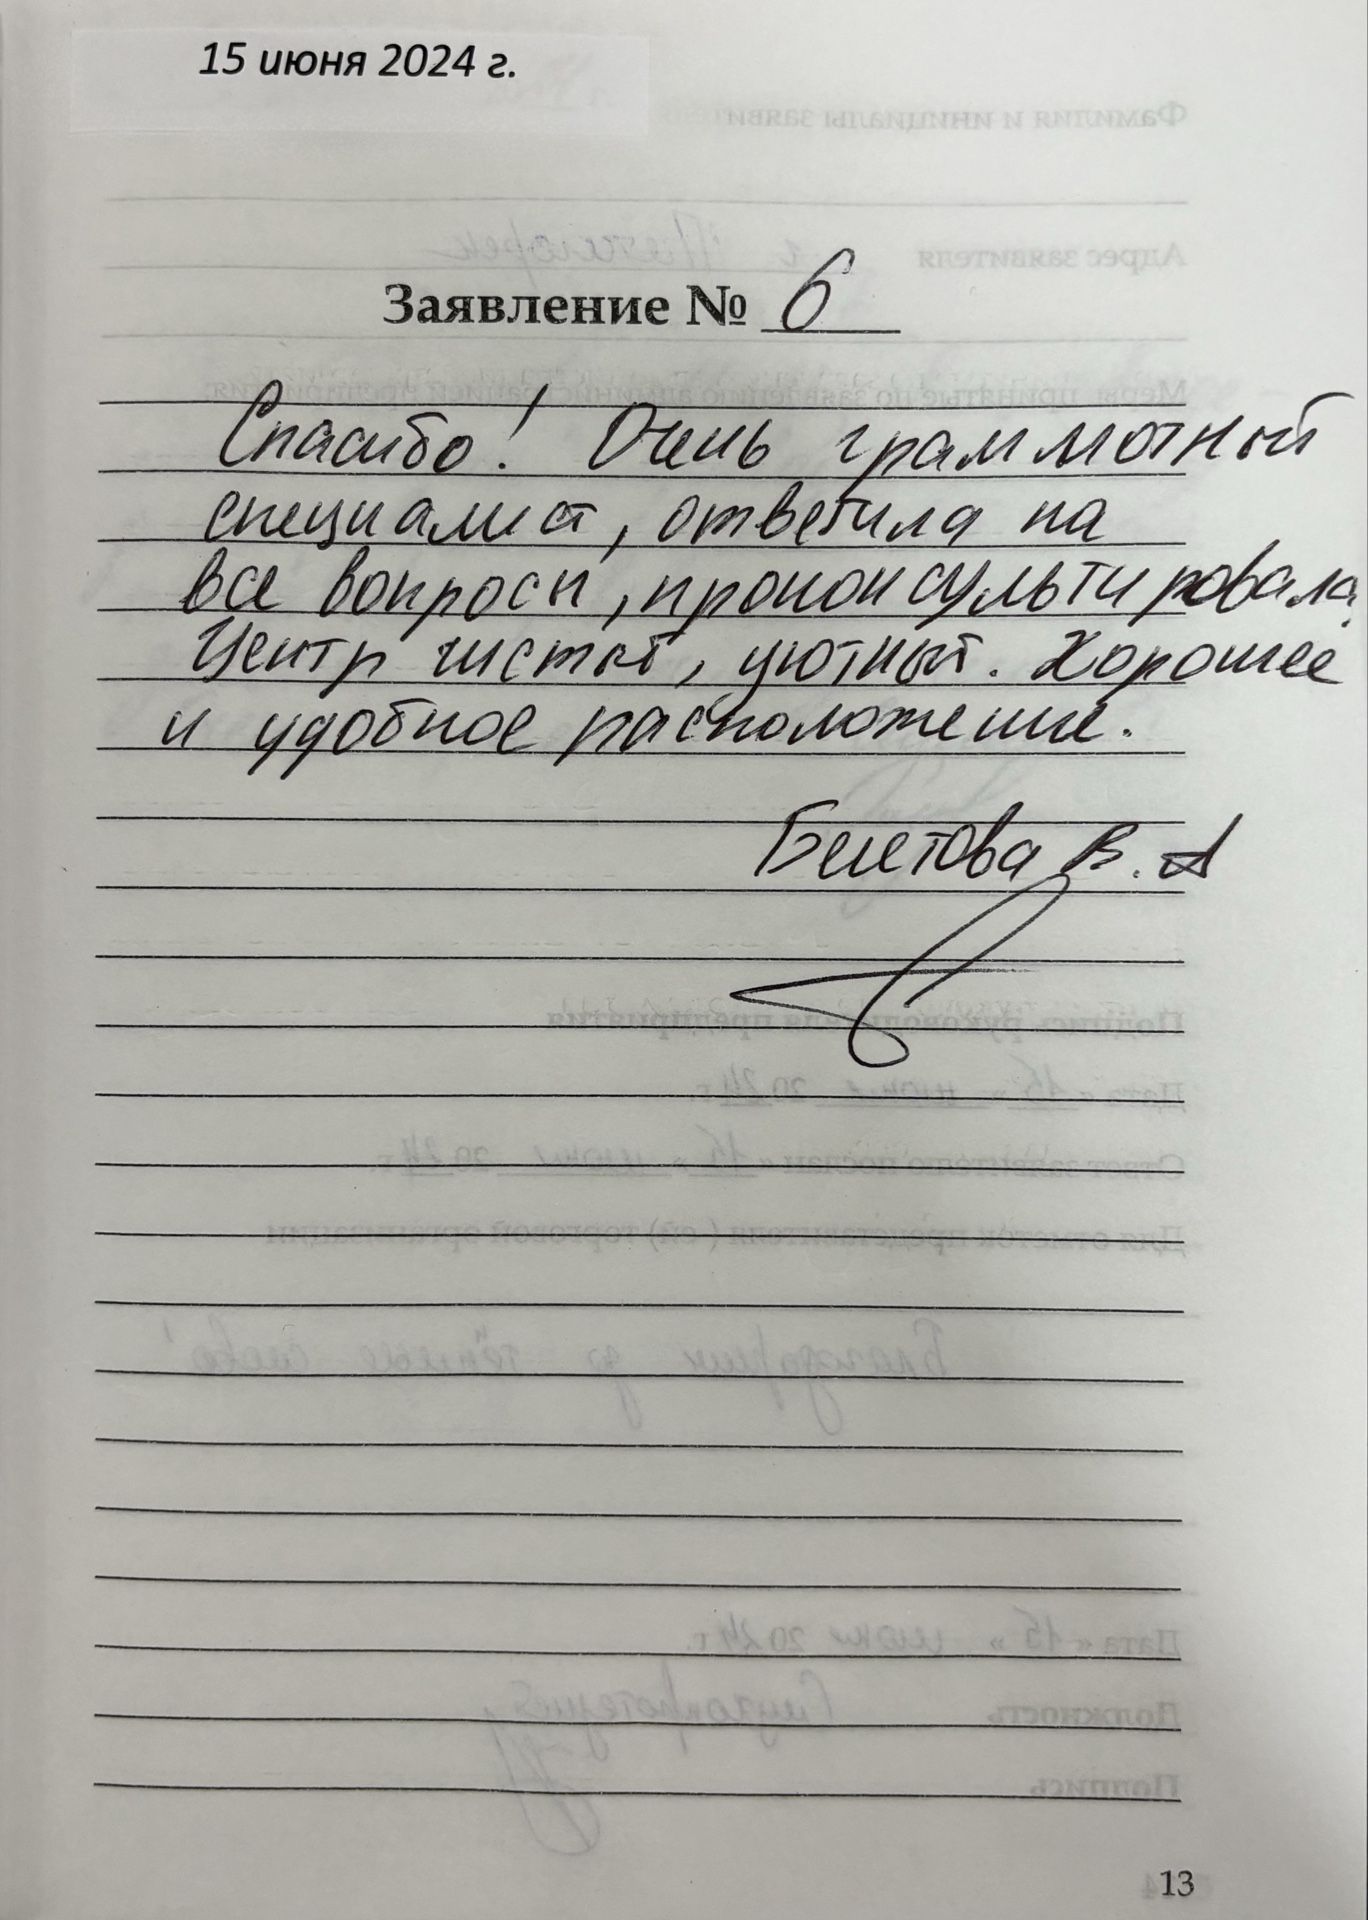 15 июня 2024 г.
Заявление № 6
Спасибо! Очень грамотный
специалист, ответила на
все вопросы, проконсультировала.
Центр чистый, уютный. Хорошее
и удобное расположение.
В. А
13